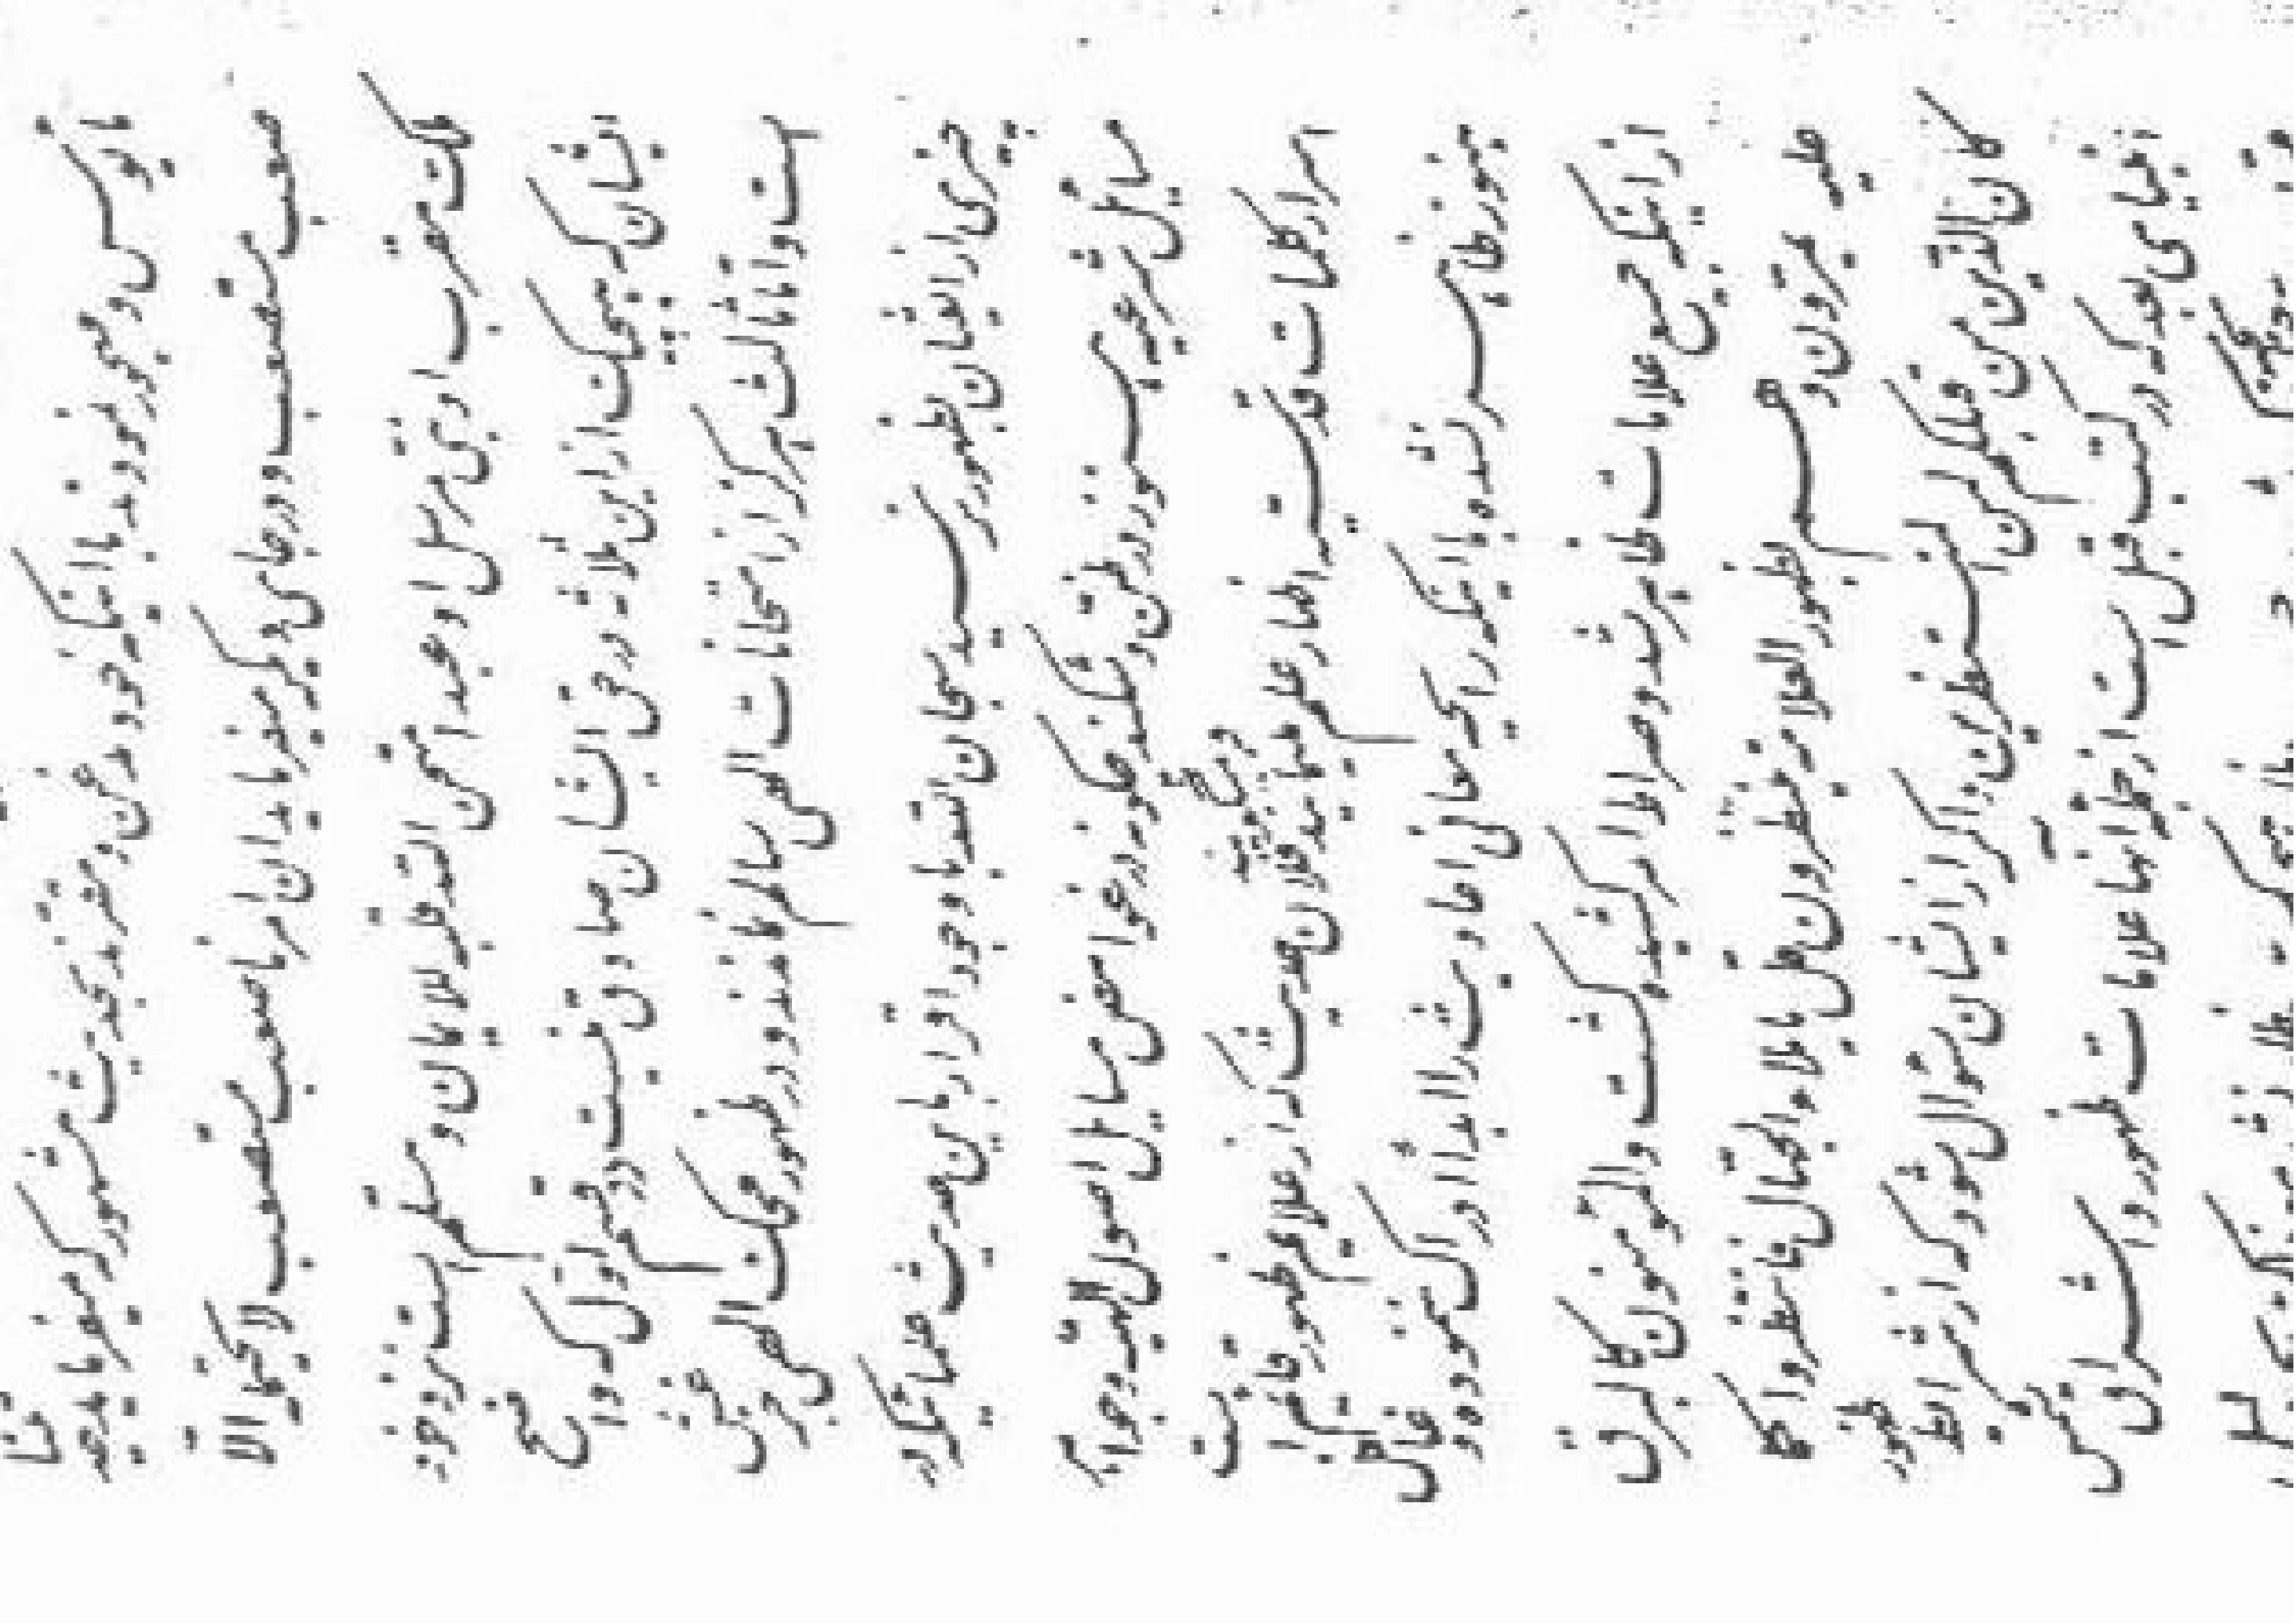 مأیوس و مهجور نمودند با اینکه خود مذعن و مقرند بحدیث مشهور که میفرماید حدیثنا
صعب مستصعب و در جای دیگر میفرماید ان امرنا صعب مستصعب لا یحتمله الا
ملک مقرب او نبی مرسل او عبد امتحن الله قلبه للایمان و مسلم است نزد خود
ایشان که هیچیک از این ثلاثه در حق ایشان صادق نیست دو قسم اول که واضح
است و اما ثالث هرگز از امتحانات الهی سالم نماندند و در ظهور محک الهی جز غش
چیزی از ایشان بظهور نرسید سبحان الله با وجود اقرار باین حدیث علمائیکه در
مسائل شرعیه هنوز در ظن و شکند چگونه در غوامض مسائل اصول الهیه و جواهر
اسرار کلمات قدسیه اظهار علم مینمایند و میگویند فلان حدیث که از علائم ظهور قائم است
هنوز ظاهر نشده با اینکه رائحه معانی احادیث را ابدا ادراک ننموده و غافل
از اینکه جمیع علامات ظاهر شد و صراط امر کشیده گشت والمؤمنون کالبرق
علیه یمرون و هم لظهور العلامة ینتظرون قل یا ملأ الجهال فانتظروا کما
کان الذین من قبلکم لمن المنتظرین و اگر از ایشان سؤال شود که از شرائط ظهور
انبیای بعد که در کتب قبل است از جمله آنها علامات ظهور و اشراق شمس